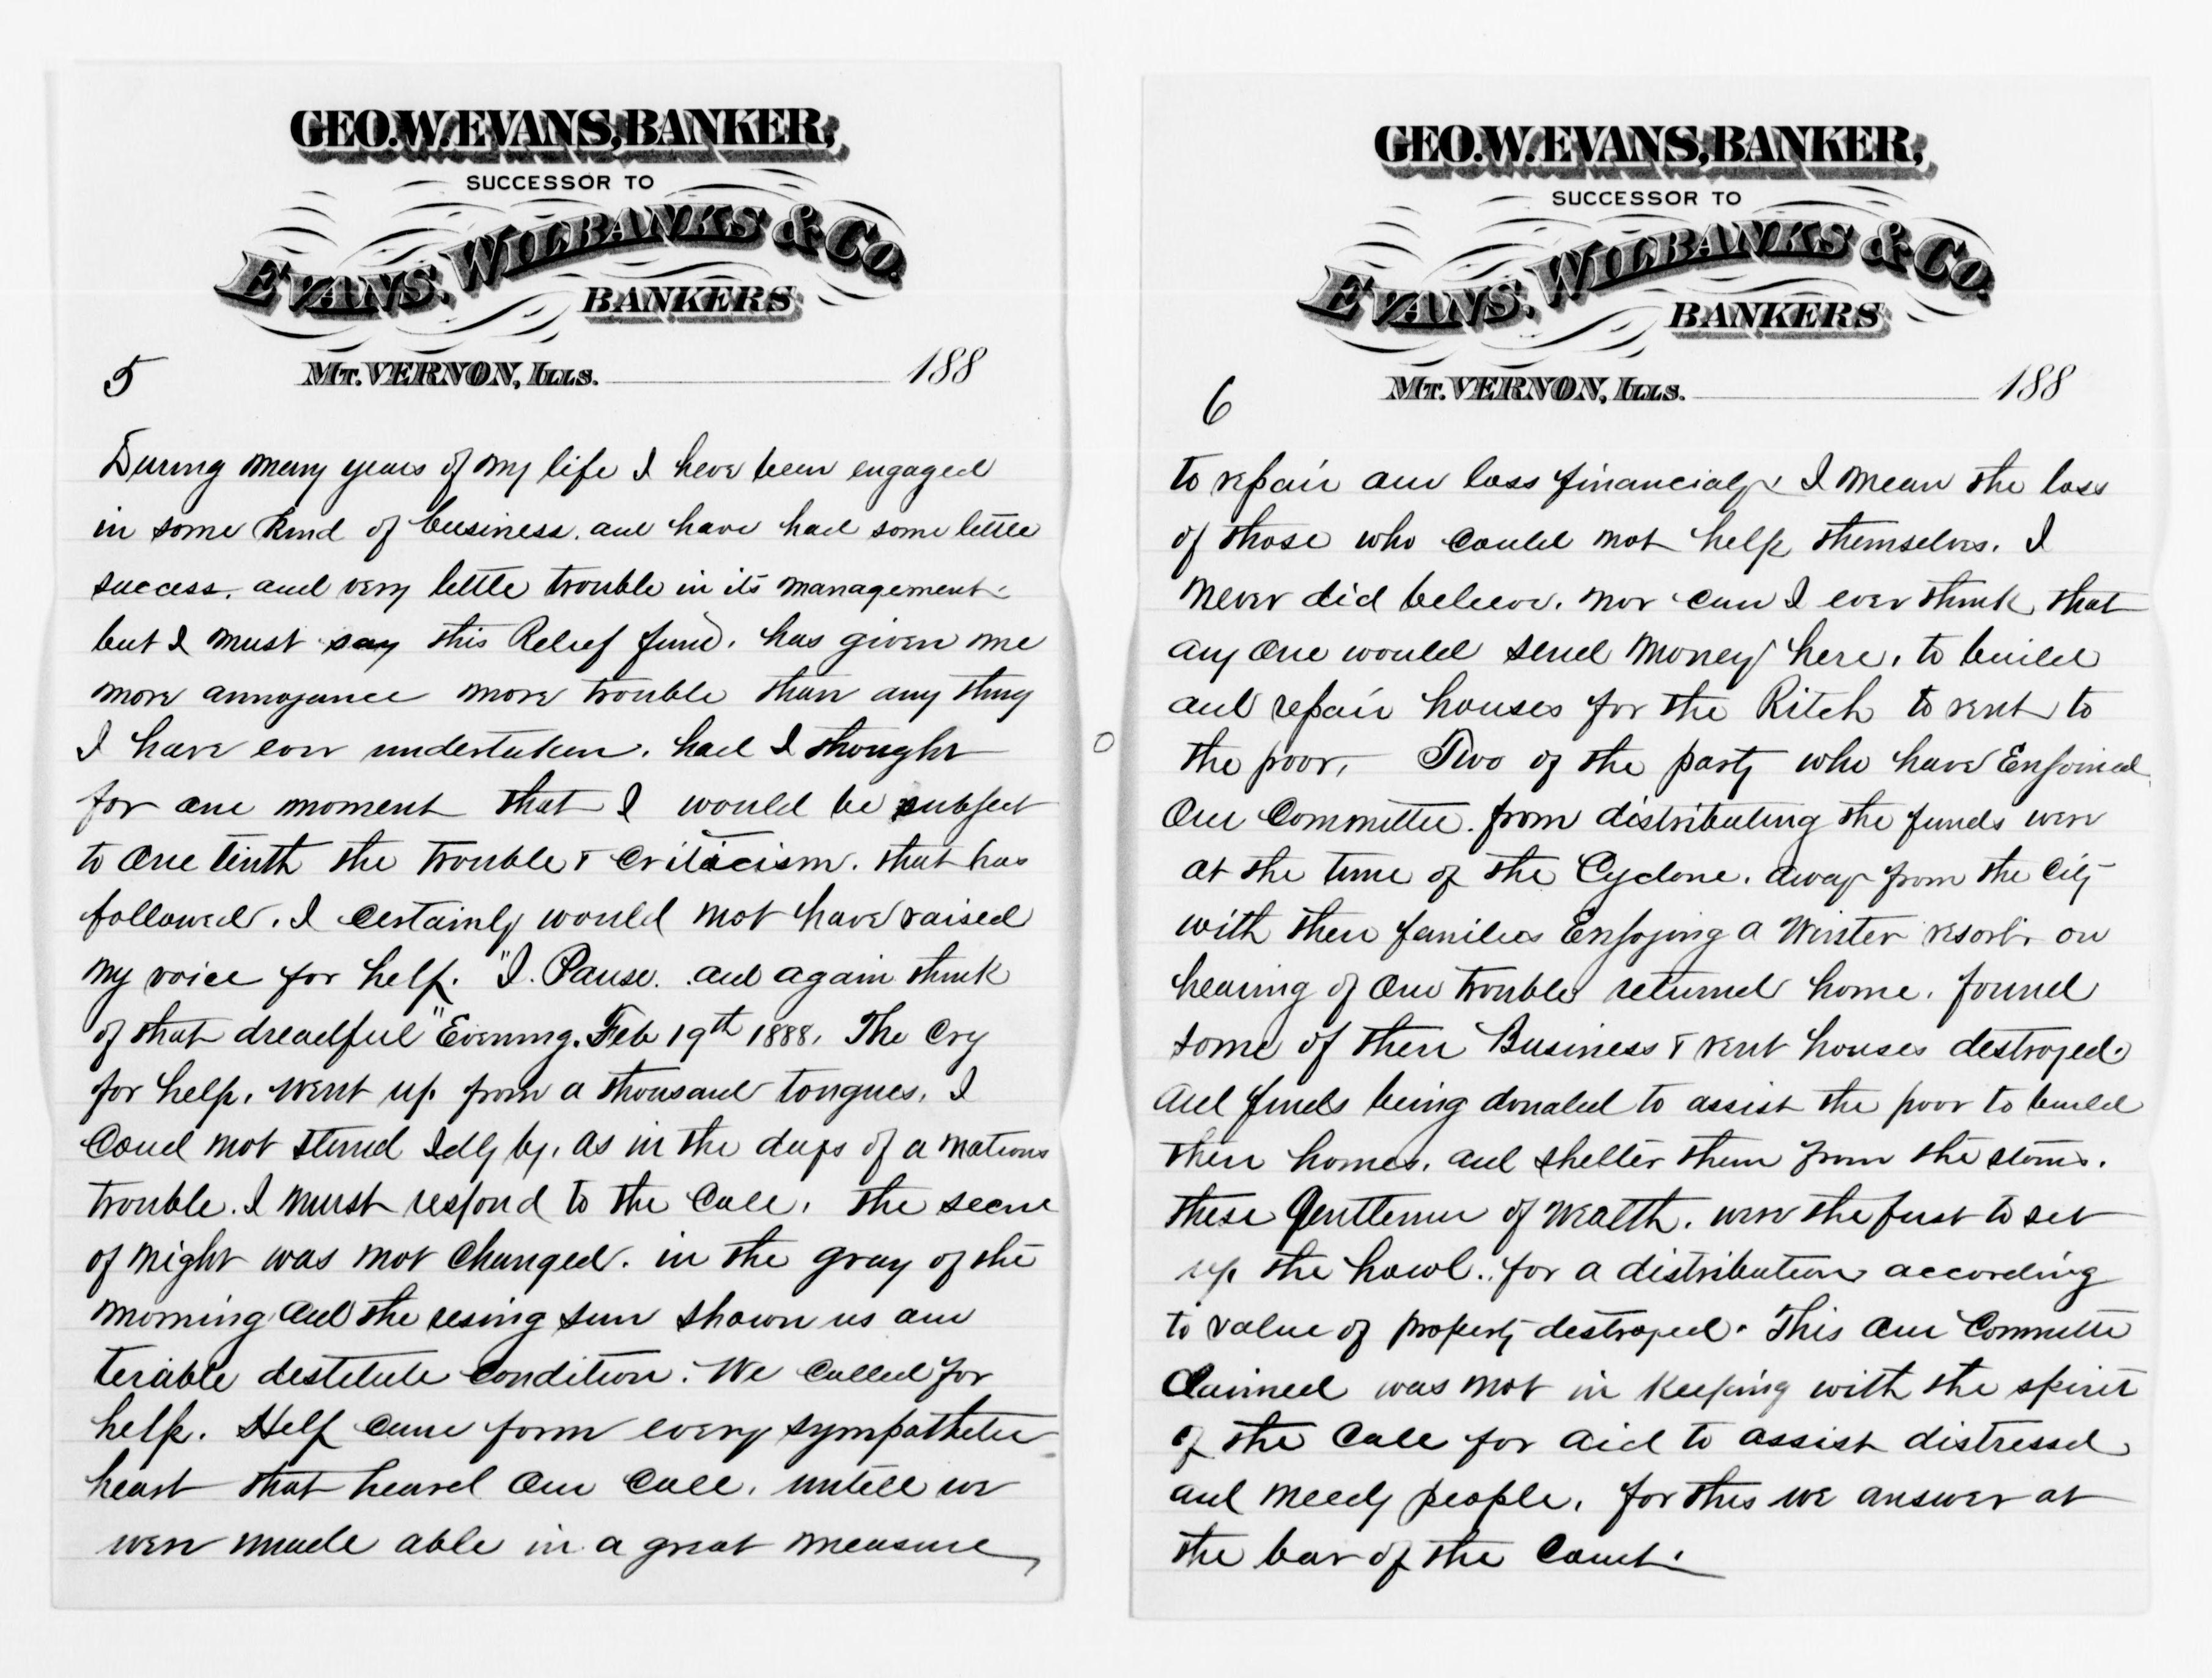 GEO. W. EVANS, BANKER,
SUCCESSOR TO
EVANS, WILBANKS & CO.
BANKERS
5 MT. VERNON, ILLS. 188
During many years of my life I have been engaged
in some kind of business. and have had some little
success. and very little trouble in its management.
but I must say this Relief fund. has given me
more annoyance more trouble than any thing
I have ever undertaken. had I thought
for one moment that I would be subject
to one tenth the trouble & Criticism. that has
followed. I certainly would not have raised
my voice for help. "I. Pause. and again think
of that dreadful" Evening. Feb 19th 1888. The Cry
for help. went up. from a thousand tongues. I
Coud not stand Idly by. as in the days of a nations
trouble. I must respond to the Call. the secne
of night was not changed. in the gray of the
morning and the resing sun shown us our
teriable destitute condition. We Called for
help. Help came form every sympathetic
heart that heard our Call. untill we
were made able in a great measure
GEO. W. EVANS, BANKER,
SUCCESSOR TO
EVANS, WILBANKS & CO.
BANKERS
6 MT. VERNON, ILLS. 188
to repair our loss financialy I mean the loss
of those who could not help themselves. I
never did believe. nor can I ever think that
any one would send money here. to build
and repair houses for the Ritch to rent to
the poor. Two of the party who have Enjoined
our Committee. from distributing the funds were
at the time of the Cyclone. away from the City
with their families Enjoying a Winter resort. on
hearing of our trouble returned home. found
some of their Business & rent houses destroyed.
and funds being donated to assist the poor to build
their homes. and shelter them from the storms.
these Gentlemen of wealth. were the first to set
up. the howl.. for a distribution according
to value of property destroyed. This our Committe
Claimed was not in keeping with the spirit
of the Call for aid to assist distressed
and needy people. for this we answer at
the bar of the Court.